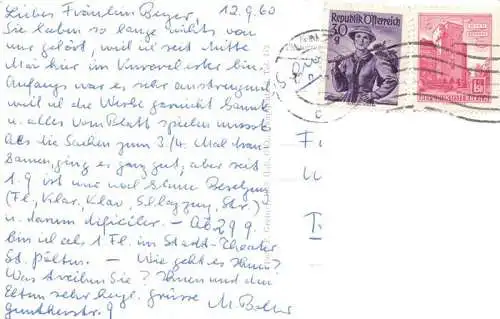 Liebes Fräulein Beyer, 12.9.60
Sie haben so lange nichts von
mir gehört, weil ich seit Mitte
Mai hier im Kurorchester bin.
Anfangs war es sehr anstrengend
weil ich die Werke garnicht kannte
u. alles vom Blatt spielen musste
Als die Sachen zum 3/4. Mal dran
kamen, ging es ganz gut, aber seit
1.9 ist nur noch kleine Besetzung
(Fl, Klar, Klav, Schlagzeug, Str.)
u. darum dificiler. — Ab 29 9.
bin ich als 1 Fl. im Stadt-Theater
St. Pölten. — Wie geht es Ihnen?
Was treiben Sie? Ihnen und den
Eltern sehr herzl. Grüsse
Guntherstr. 9
Republik Österreich
30
g